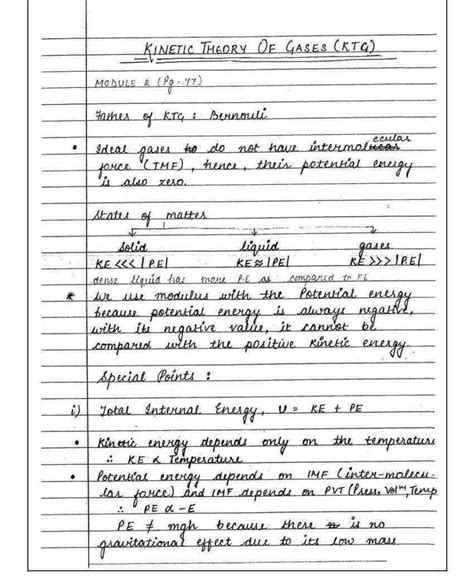 KINETIC THEORY OF GASES (KTG)
MODULE 2 (Pg-77)
Father of KTG : Bernouli
• Ideal gases do not have intermolecular
force (IMF), hence, their potential energy
is also zero.
States of matter
solid liquid gases
KE <<< |PE| KE ≈ |PE| KE >>> |PE|
dense liquid has more P.E as compared to KE
* We use modulus with the Potential energy
because potential energy is always negative,
with its negative value, it cannot be
compared with the positive kinetic energy.
Special Points :
i) Total Internal Energy, U = KE + PE
• Kinetic energy depends only on the temperature
∴ KE ∝ Temperature
• Potential energy depends on IMF (inter-molecu-
lar force) and IMF depends on PVT (Press, Volᵐ, Temp
∴ PE ∝ -E
PE ≠ mgh because there is no
gravitational effect due to its low mass